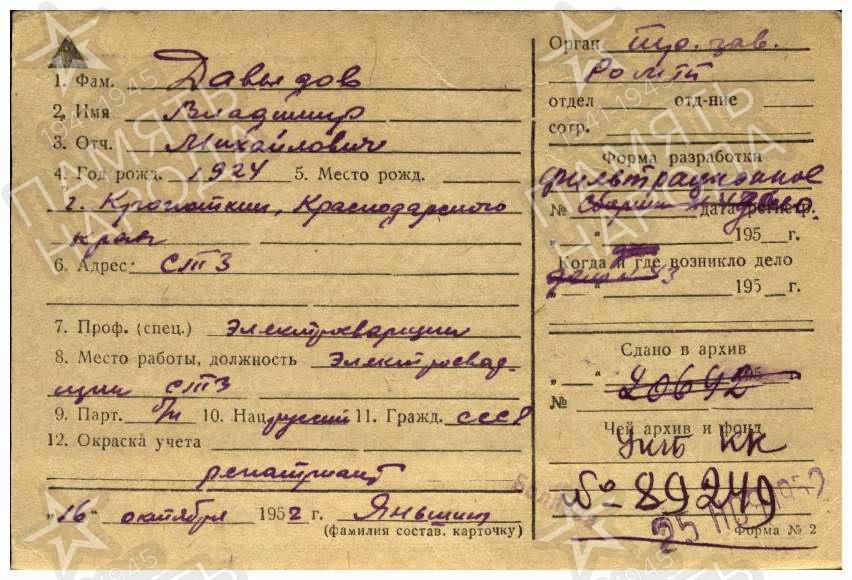 1. Фам. Давыдов
2. Имя Владимир
3. Отч. Михайлович
4. Год рожд. 1924 5. Место рожд.
г. Кропоткин, Краснодарского
края
6. Адрес: СТЗ
7. Проф. (спец.) Электросварщик
8. Место работы, должность Электросвар-
щик СТЗ
9. Парт. б/п 10. Нац. русский 11. Гражд. СССР
12. Окраска учета
репатриант
"16" октября 1952 г. Яньшин
(фамилия состав. карточку)
Орган зав.
отдел отд-ние
сотр.
Форма разработки
фильтрационное
№ дата регистр. дело.
" " 195 г.
Когда и где возникло дело
" " 195 г.
Сдано в архив
" " 195 г.
№ 20692
Чей архив и фонд
КК
№ 89249
25
Форма № 2
ПАМЯТЬ НАРОДА
1941-1945